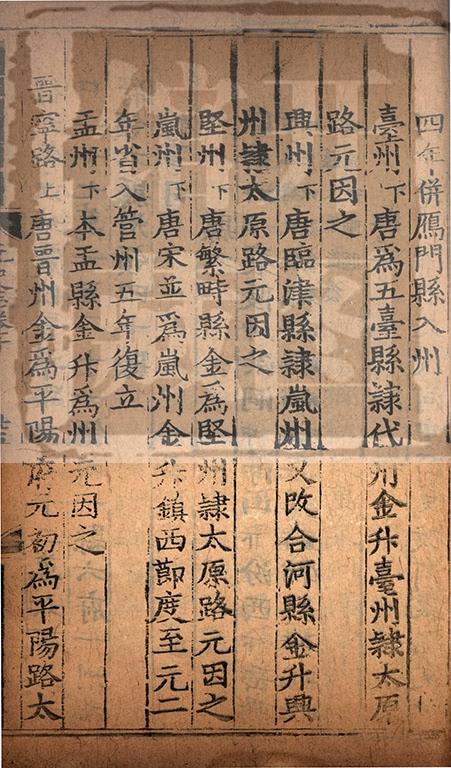 四年併鴈門縣入州
臺州下唐爲五臺縣隷代州金升臺州隷太原
路元因之
興州下唐臨津縣隷嵐州又改合河縣金升興
州隷太原路元因之
堅州下唐繁畤縣金爲堅州隷太原路元因之
嵐州下唐宋並爲嵐州金升鎮西節度至元二
年省入管州五年復立
孟州下本孟縣金升爲州元因之
晉寧路上唐晉州金爲平陽府元初爲平陽路太